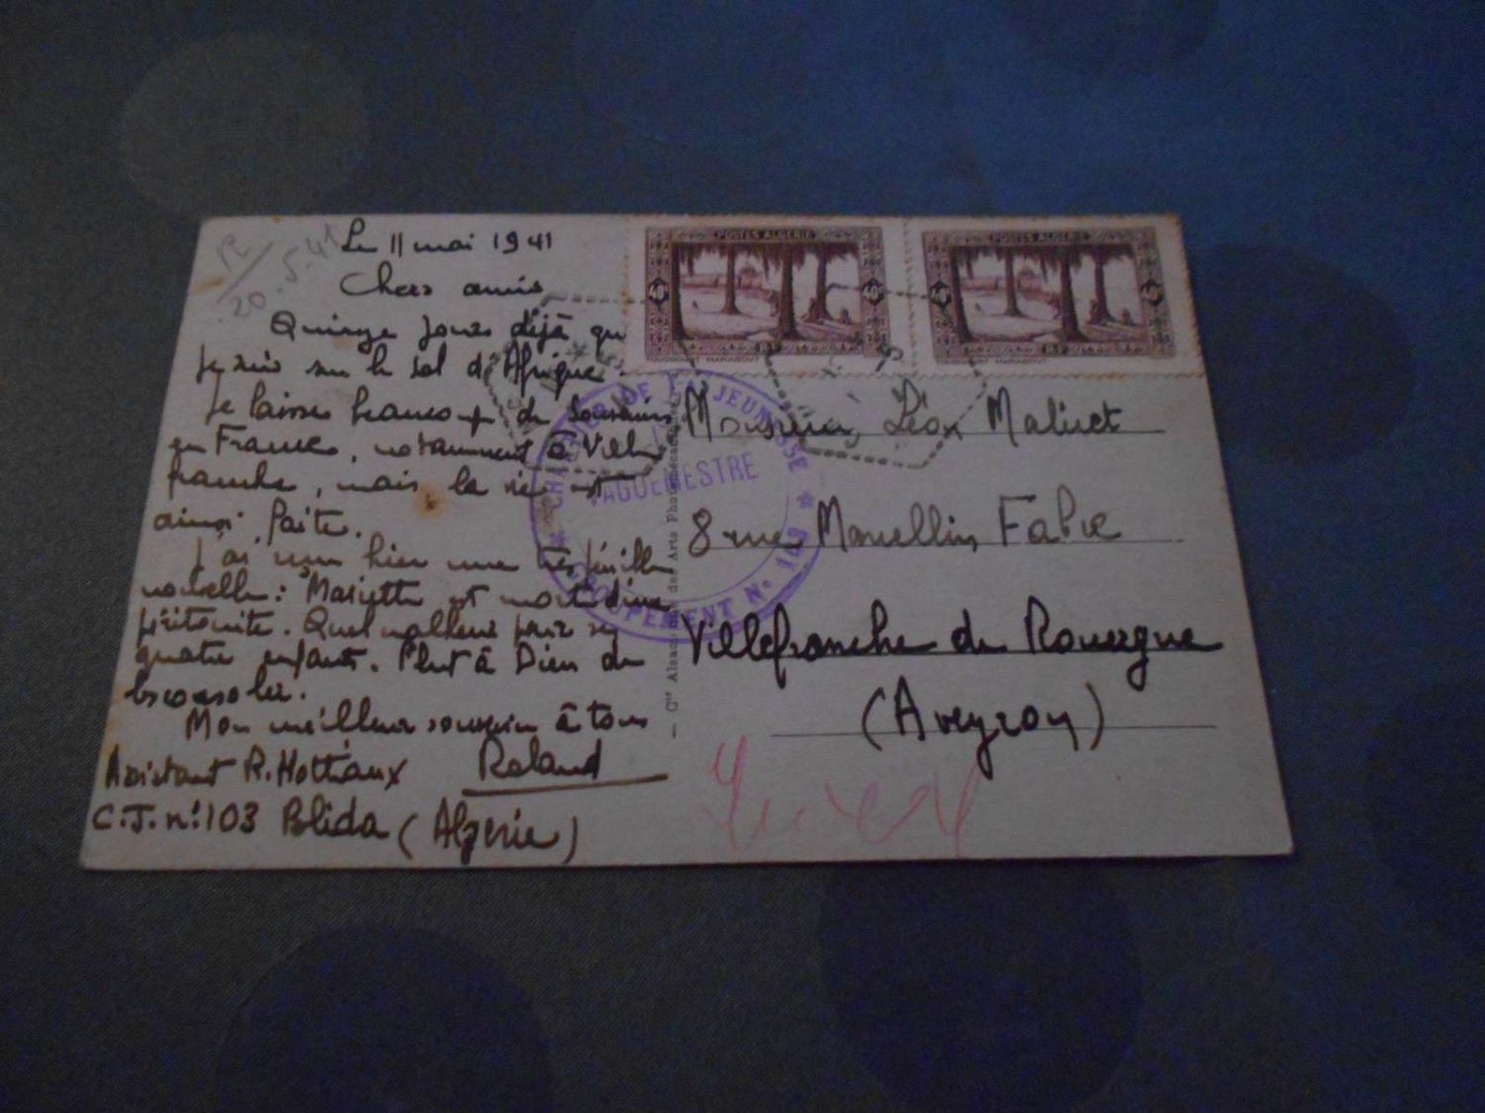 R/
20.5.41
Le 11 mai 1941
Chers amis
Quinze jours déjà que
je suis sur le sol d'Afrique
Je laisse beaucoup de souvenirs
en France, notamment à Ville
franche, mais la vie est
ainsi faite.
J'ai reçu hier une très pénible
nouvelle: Mariette est morte d'une
péritonite. Quel malheur pour ses
quatre enfants. Plut à Dieu de
les consoler.
Mon meilleur souvenir à tous
Roland
Assistant R. Hottiaux
C.J. n: 103 Blida (Algérie)
POSTES ALGERIE
40
40
RF
TOUGGOURT MARABOUT
POSTES ALGERIE
40
40
RF
MARABOUT
CHANTIERS DE LA JEUNESSE
VAGUEMESTRE
GROUPEMENT N° 103
des Arts Photomécaniques
Monsieur Léon
8 rue Marcellin Fabre
Villefranche de Rouergue
(Aveyron)